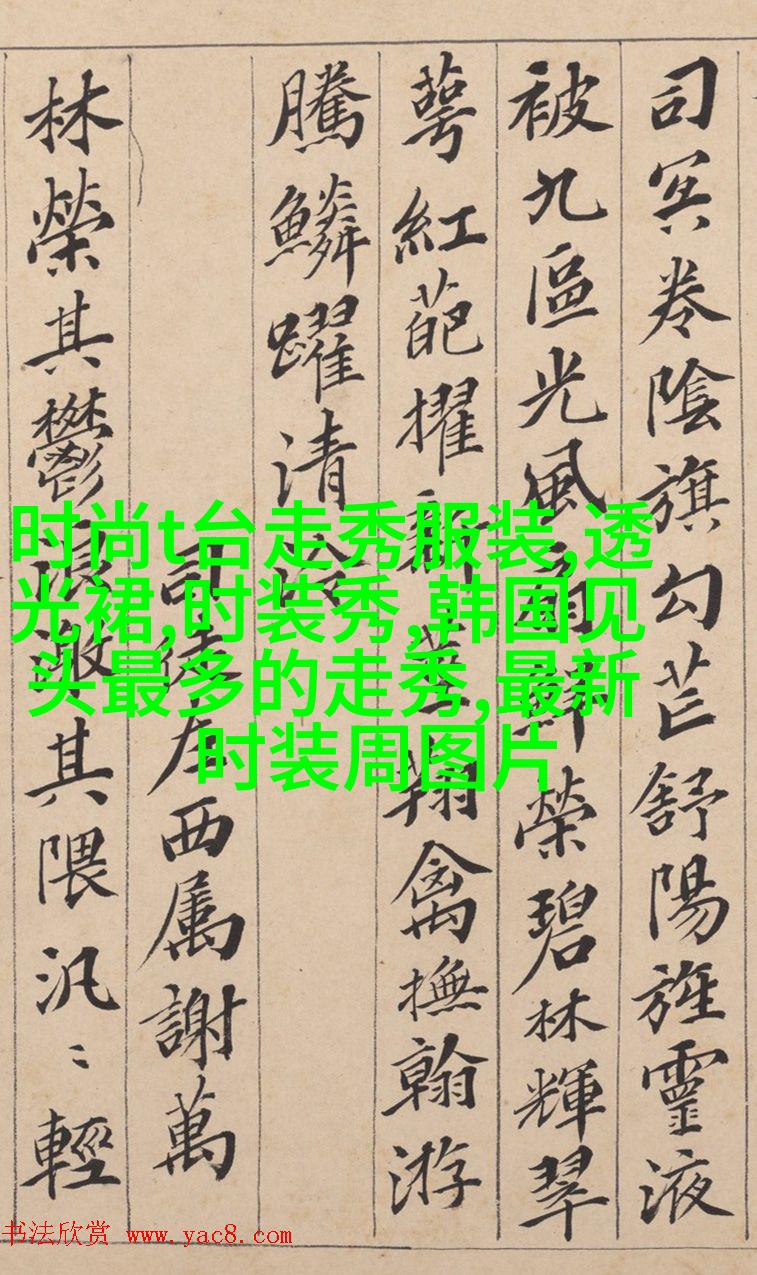 司冥卷陰旗勾芒舒陽旌靈液
被九區光風扇鮮榮碧林輝翠
萼紅葩擢新莖翔禽撫翰游
騰鱗躍清泠
司徒左西属謝萬
林榮其鬱浪激其隈汎〻輕
时尚t台走秀服装,透
光裙,时装秀,韩国见
头最多的走秀,最新
时装周图片
书法欣赏 www.yac8.com